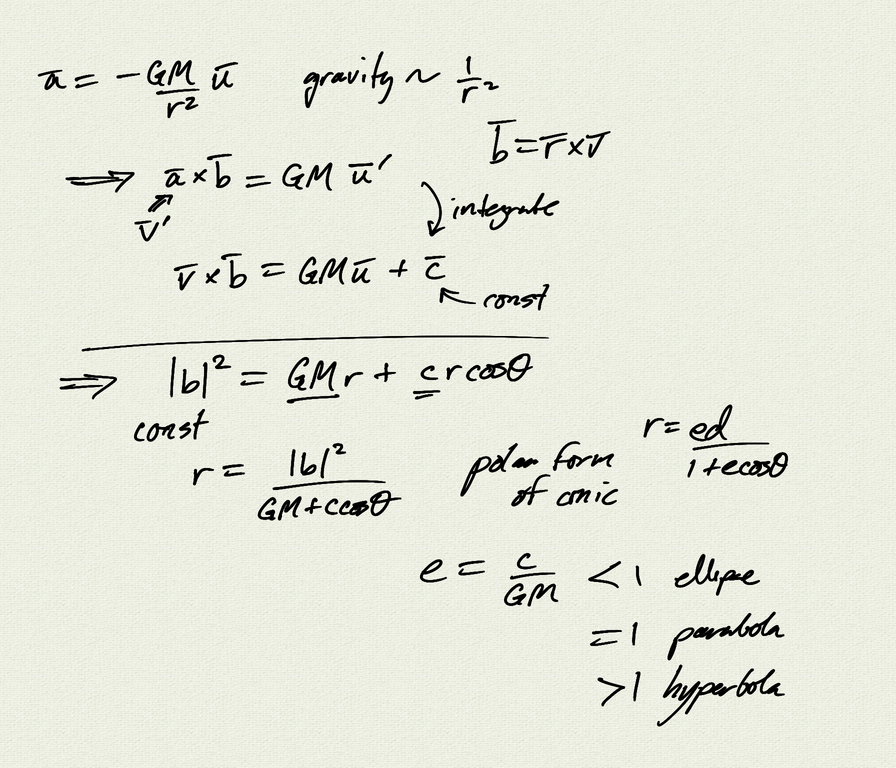 ā = −GM/r² ū gravity ~ 1/r²
b̄ = r̄ × v̄
⟹ ā × b̄ = GM ū′
v̄′ integrate
v̄ × b̄ = GMū + c̄
const
⟹ |b|² = GMr + c r cosθ
const
r = |b|²/(GM + c cosθ) polar form of conic r = ed/(1 + e cosθ)
e = c/GM < 1 ellipse
= 1 parabola
> 1 hyperbola